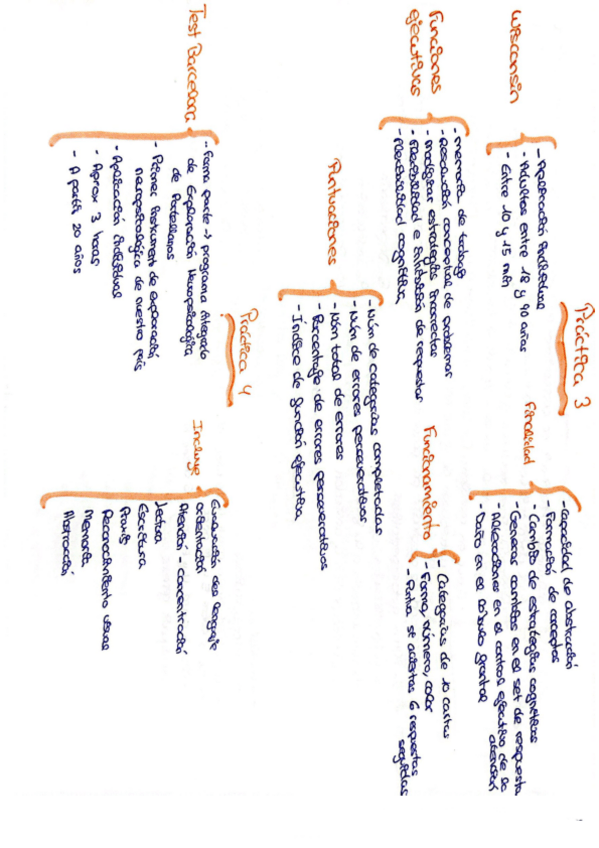 Práctica 3
Wisconsin
- Aplicación individual
- Adultos entre 18 y 90 años
- Entre 10 y 15 min
Finalidad
- Capacidad de abstracción
- Formación de conceptos
- Cambio de estrategias cognitivas
- Generar cambios en el set de respuesta
- Alteraciones en el control ejecutivo de la atención
- Daño en el lóbulo frontal
Funciones
ejecutivas
- Memoria de trabajo
- Resolución conceptual de problemas
- Modificar estrategias incorrectas
- Flexibilidad e inhibición de respuestas
- Flexibilidad cognitiva
Funcionamiento
- Categorías de 10 cartas
- Forma, número, color
- Puntúa si aciertas 6 respuestas
seguidas
Puntuaciones
- Núm de categorías completadas
- Núm de errores perseverativos
- Núm total de errores
- Porcentaje de errores perseverativos
- Índice de función ejecutiva
Práctica 4
Test Barcelona
- Forma parte → programa integrado
de Exploración Neuropsicológica
de
- Primer instrument de exploración
neuropsicológica de nuestro país
- Aplicación individual
- Aprox 3 horas
- A partir 20 años
Incluye
Evaluación del lenguaje
orientación
Atención - concentración
Lectura
Escritura
Praxis
Reconocimiento visual
Memoria
Abstracción